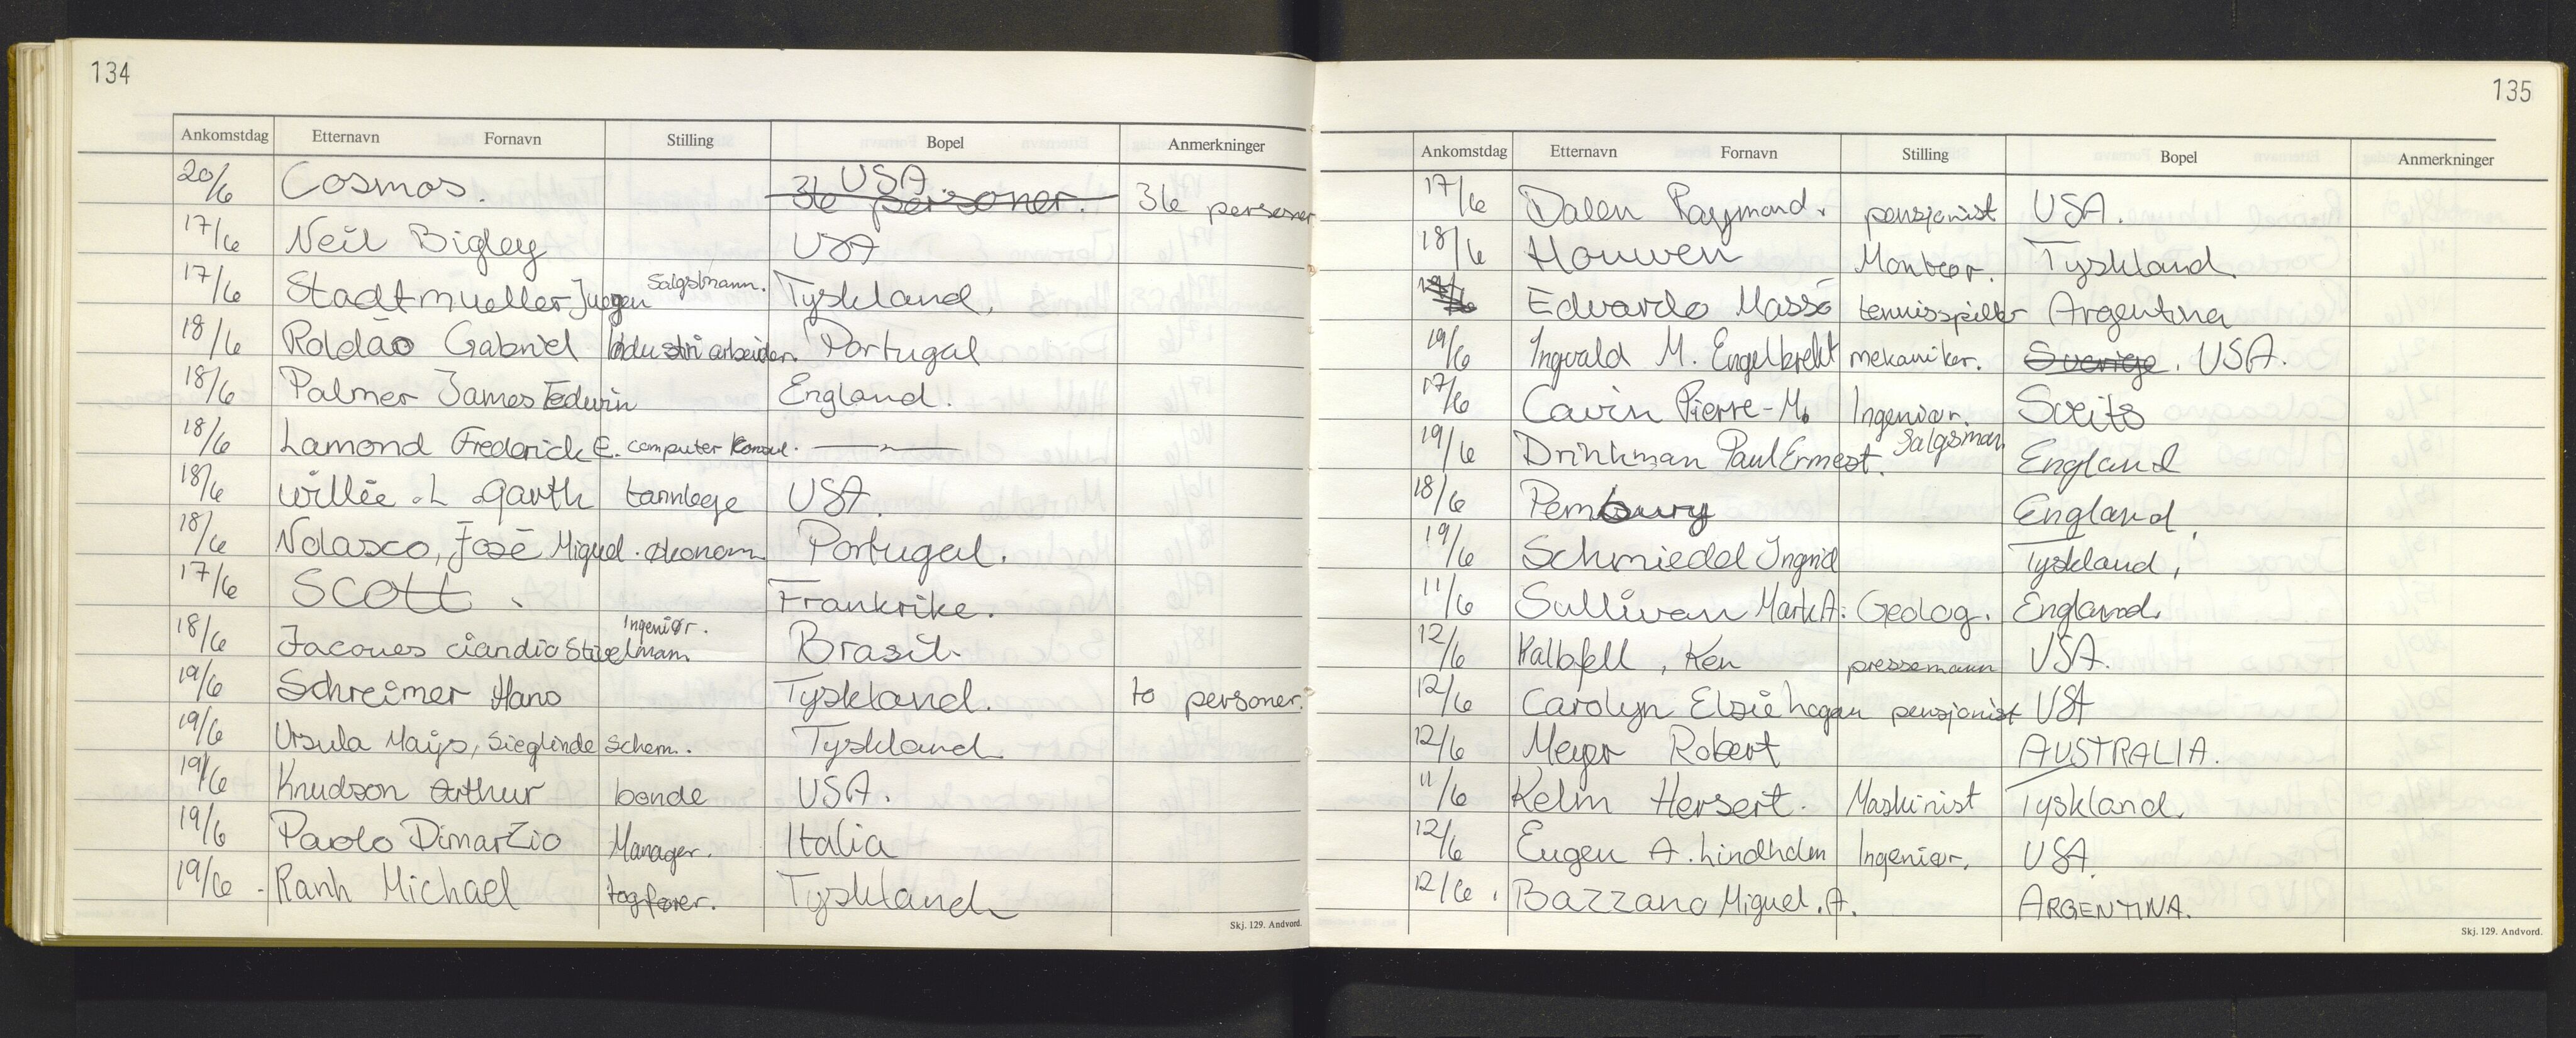 134
Ankomstdag Etternavn Fornavn Stilling Bopel Anmerkninger
20/6 Cosmos. USA. 36 personer. 36 personer
17/6 Neil Bigley USA
17/6 Stadtmueller Juegen Salgsmann. Tyskland.
18/6 Roldão Gabriel Industriarbeider. Portugal
18/6 Palmer James Edwin England.
18/6 Lamond Frederick E. computer Konsul. —〃—
18/6 Willie . L Garth tannlege USA.
18/6 Nolasco, José Miguel. økonom Portugal.
17/6 Scott. Frankrike.
18/6 Jacoues ciandio Stivelmam Ingeniør. Brasil.
19/6 Schreimer Hans Tyskland. to personer.
19/6 Ursula Maijs, Sieglinde Schem.. Tyskland
19/6 Knudson Arthur bonde USA.
19/6 Paolo Dimarzio Manager. Italia
19/6 - Ranh Michael togfører. Tyskland
Skj. 129. Andvord.
135
Ankomstdag Etternavn Fornavn Stilling Bopel Anmerkninger
17/6 Dalen Raymond. pensjonist USA.
18/6 Houwen Montør. Tyskland.
Edvardo Massó tennisspiller Argentina
19/6 Ingvald M. Engelbrekt mekaniker. Sverige. USA.
17/6 Cavin Pierre-M. Ingeniør. Sveits
19/6 Drinkman Paul Ernest. Salgsman England
18/6 Pembury England.
19/6 Schmiedel Ingrid Tyskland,
11/6 Sullivan Mark A. Geolog. England.
12/6 Kalbfell, Ken pressemann USA.
12/6 Carolyn Elsie hogan pensjonist USA
12/6 Meyer Robert AUSTRALIA.
11/6 Kelm Hersert. Maskinist Tyskland.
12/6 Eugen A. Lindholm Ingeniør. USA.
12/6. Bazzano Miguel. A. ARGENTINA.
Skj. 129. Andvord.